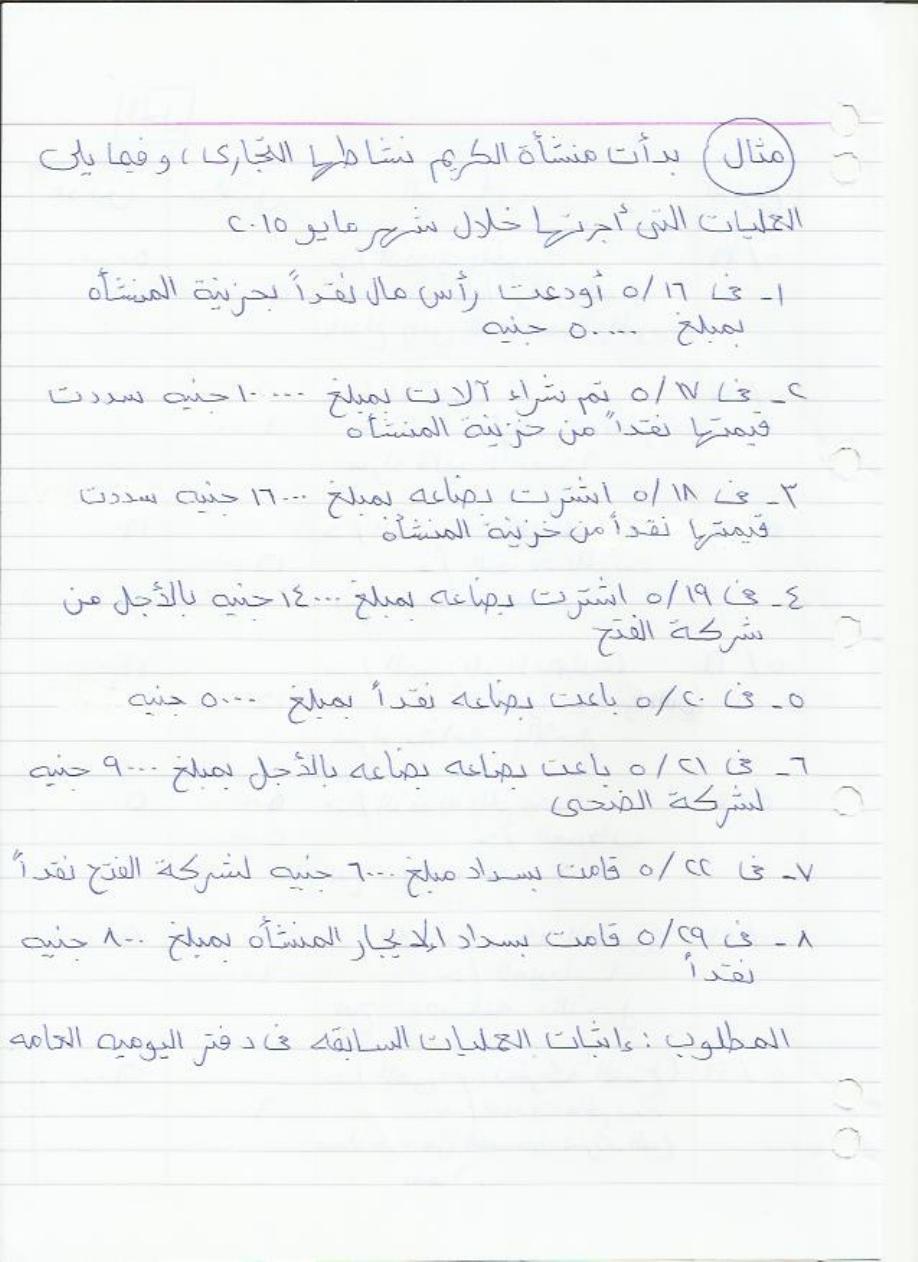 مثال بدأت منشأة الكريم نشاطها التجارى ، وفيما يلى
العمليات التى أجرتها خلال شهر مايو ٢٠١٥
١- فى ٥/١٦ أودعت رأس مال نقداً بخزينة المنشأه
بمبلغ ٥٠٠٠٠ جنيه
٢- فى ٥/١٧ تم شراء آلات بمبلغ ١٠٠٠٠ جنيه سددت
قيمتها نقداً من خزينة المنشأه
٣- فى ٥/١٨ اشترت بضاعه بمبلغ ١٦٠٠٠ جنيه سددت
قيمتها نقداً من خزينة المنشأة
٤- فى ٥/١٩ اشترت بضاعه بمبلغ ١٤٠٠٠ جنيه بالأجل من
شركة الفتح
٥- فى ٥/٢٠ باعت بضاعه نقداً بمبلغ ٥٠٠٠ جنيه
٦- فى ٥/٢١ باعت بضاعه بضاعه بالأجل بمبلغ ٩٠٠٠ جنيه
لشركة الضحى
٧- فى ٥/٢٢ قامت بسداد مبلغ ٦٠٠٠ جنيه لشركة الفتح نقداً
٨- فى ٥/٢٩ قامت بسداد المنشأه بمبلغ ٨٠٠ جنيه
نقداً
المطلوب : إثبات العمليات السابقه فى دفتر اليوميه العامه